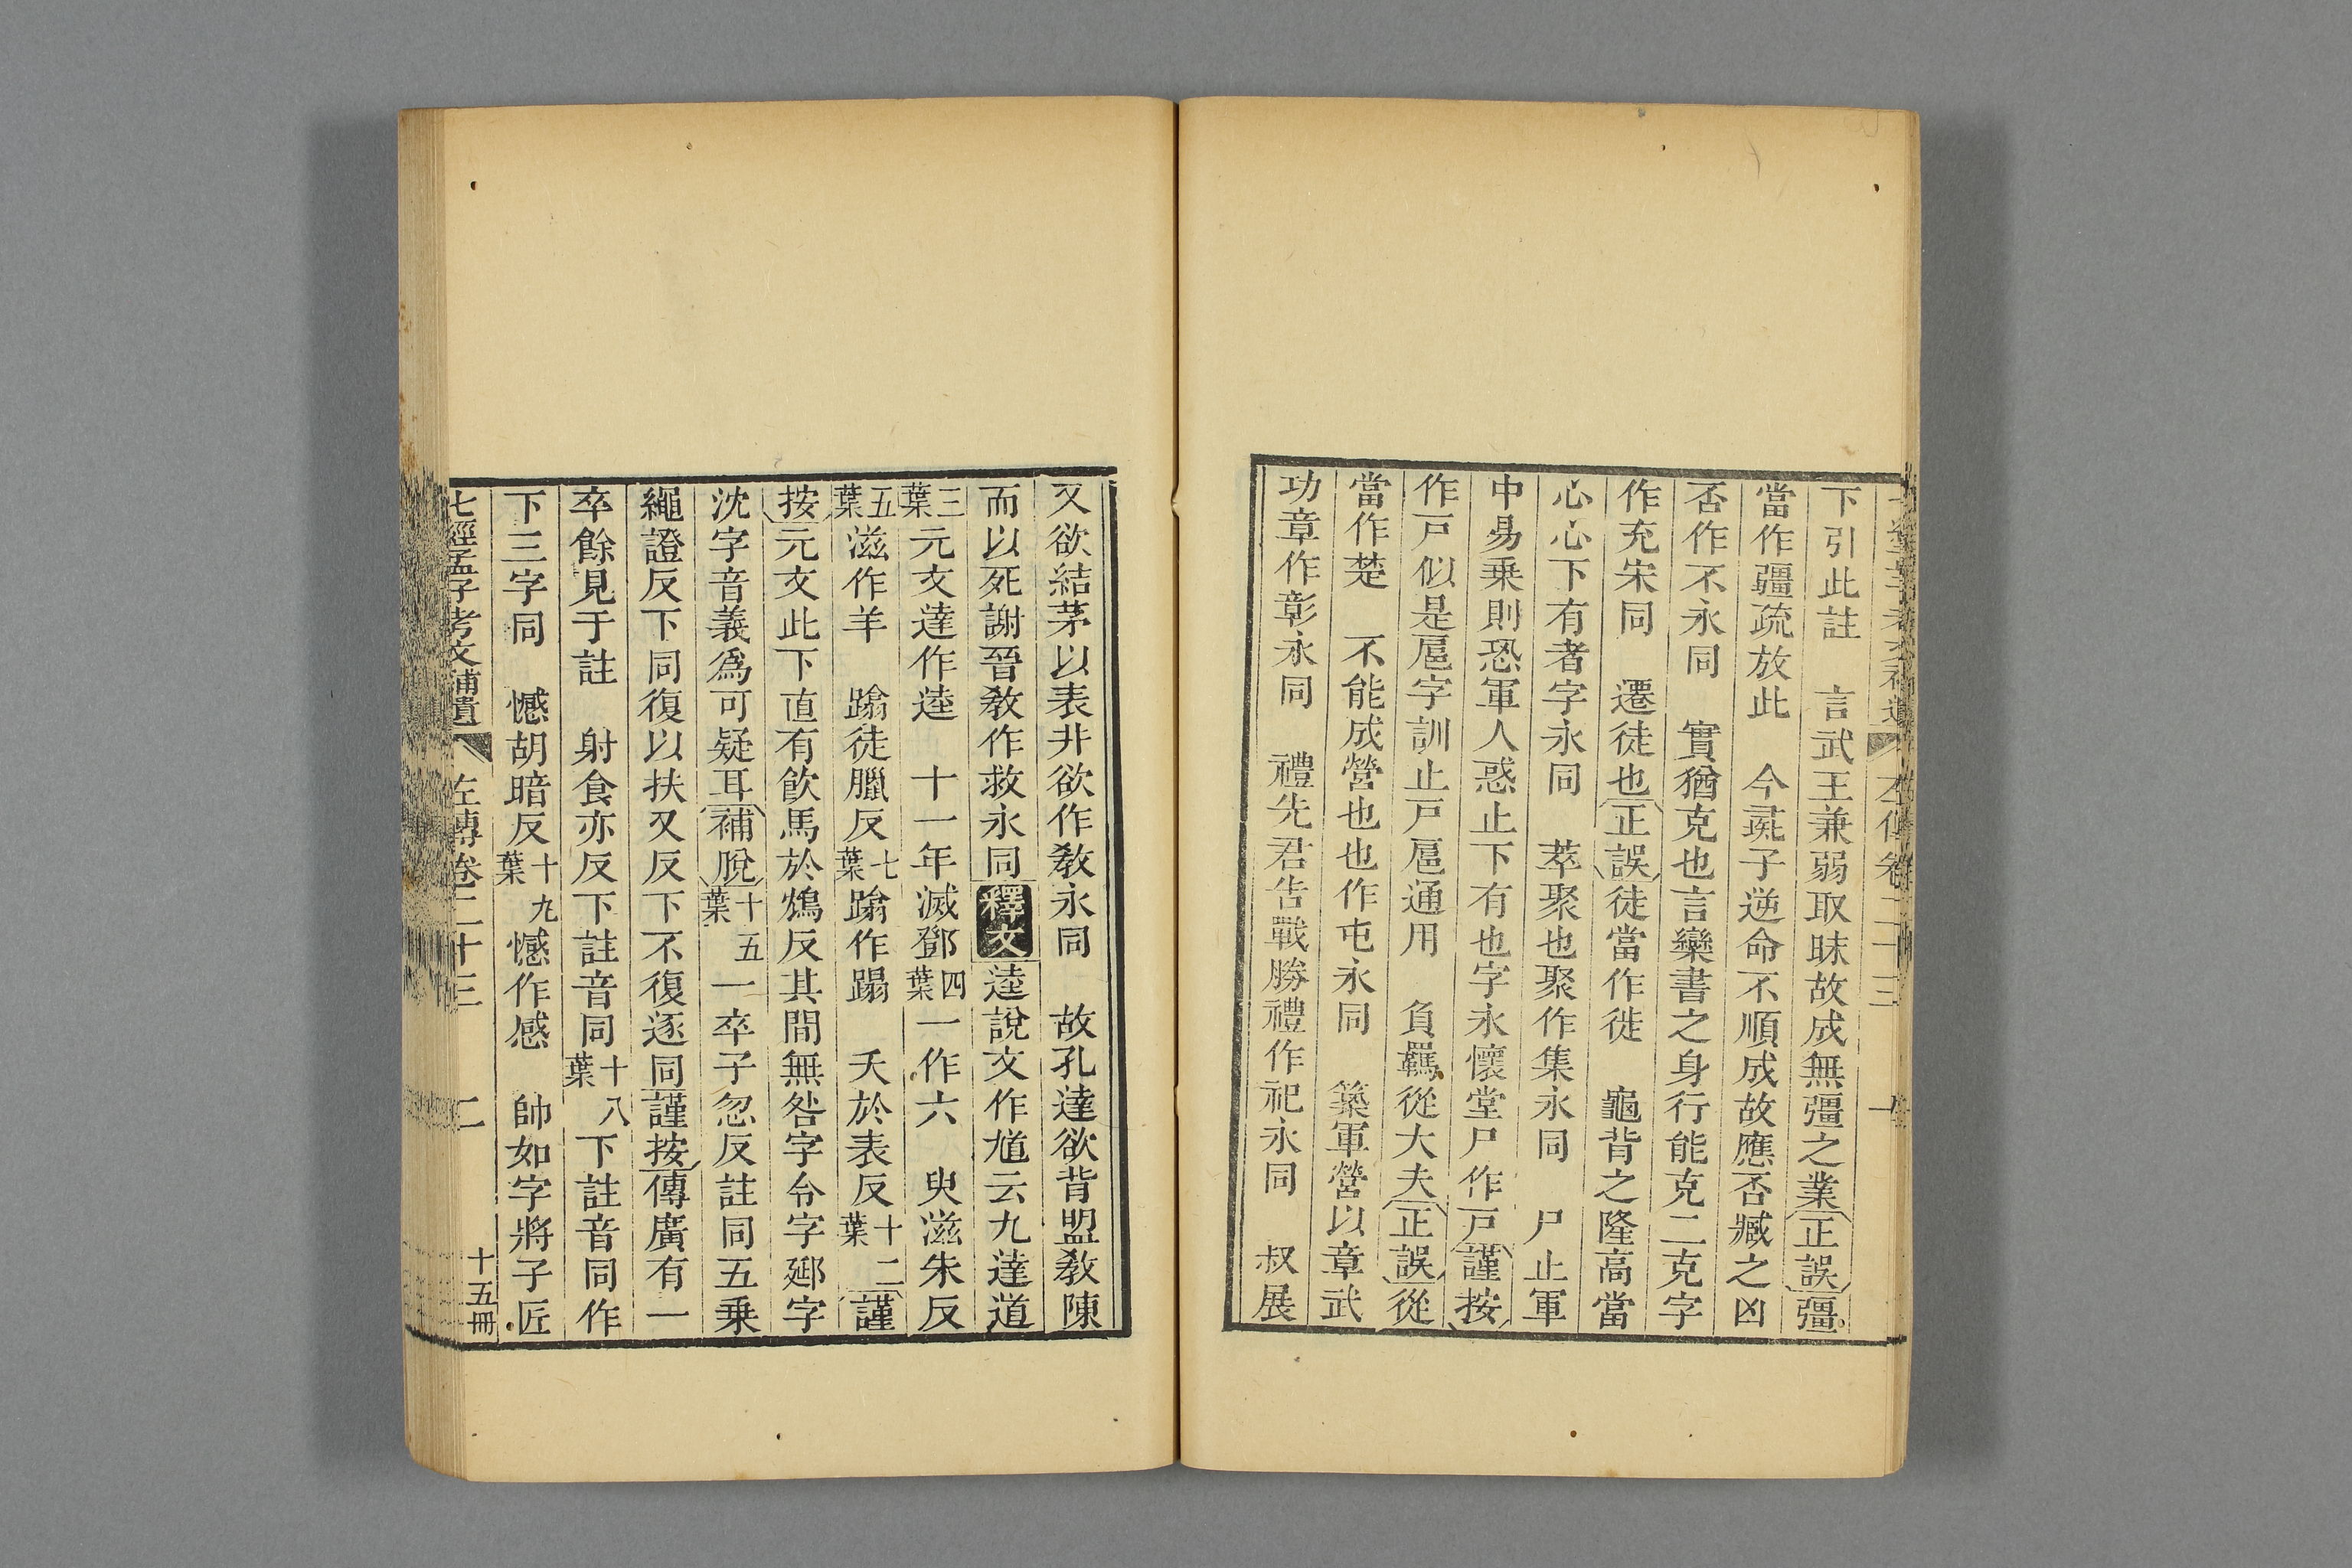 下引此註　言武王兼弱取昧故成無彊之業正誤彊
當作疆疏放此　今彘子逆命不順成故應否臧之凶
否作不永同　實猶克也言欒書之身行能克二克字
作充宋同　遷徒也正誤徒當作徙　龜背之隆高當
心心下有者字永同　萃聚也聚作集永同　尸止軍
中易乗則恐軍人惑止下有也字永懷堂尸作戸謹按
作戸似是扈字訓止戸扈通用　負羈從大夫正誤從
當作楚　不能成營也也作屯永同　築軍營以章武
功章作彰永同　禮先君告戰勝禮作祀永同　叔展
又欲結茅以表井欲作敎永同　故孔達欲背盟敎陳
而以死謝晉敎作救永同釋文逵說文作馗云九達道
三葉元文達作逵　十一年滅鄧四葉一作六　臾滋朱反
五葉滋作羊　踰徒臘反七葉踰作蹋　夭於表反十二葉謹
按元文此下直有飮馬於鴆反其間無咎字令字郔字
沈字音義爲可疑耳補脫十五葉一卒子忽反註同五乗
繩證反下同復以扶又反下不復逐同謹按傳廣有一
卒餘見于註　射食亦反下註音同十八葉下註音同作
下三字同　憾胡暗反十九葉憾作感　帥如字將子匠
七經孟子考文補遺　左傳卷二十三　二　十五冊